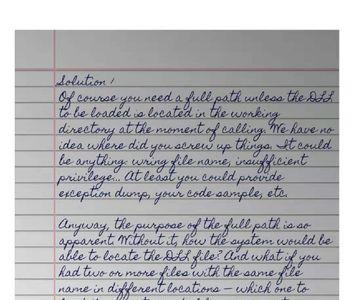 Solution 1
Of course you need a full path unless the DLL
to be loaded is located in the working
directory at the moment of calling. We have no
idea where did you screw up things. It could
be anything: wring file name, insufficient
privilege... At least you could provide
exception dump, your code sample, etc.
Anyway, the purpose of the full path is so
apparent. Without it, how the system would be
able to locate the DLL file? And what if you
had two or more files with the same file
name in different locations — which one to